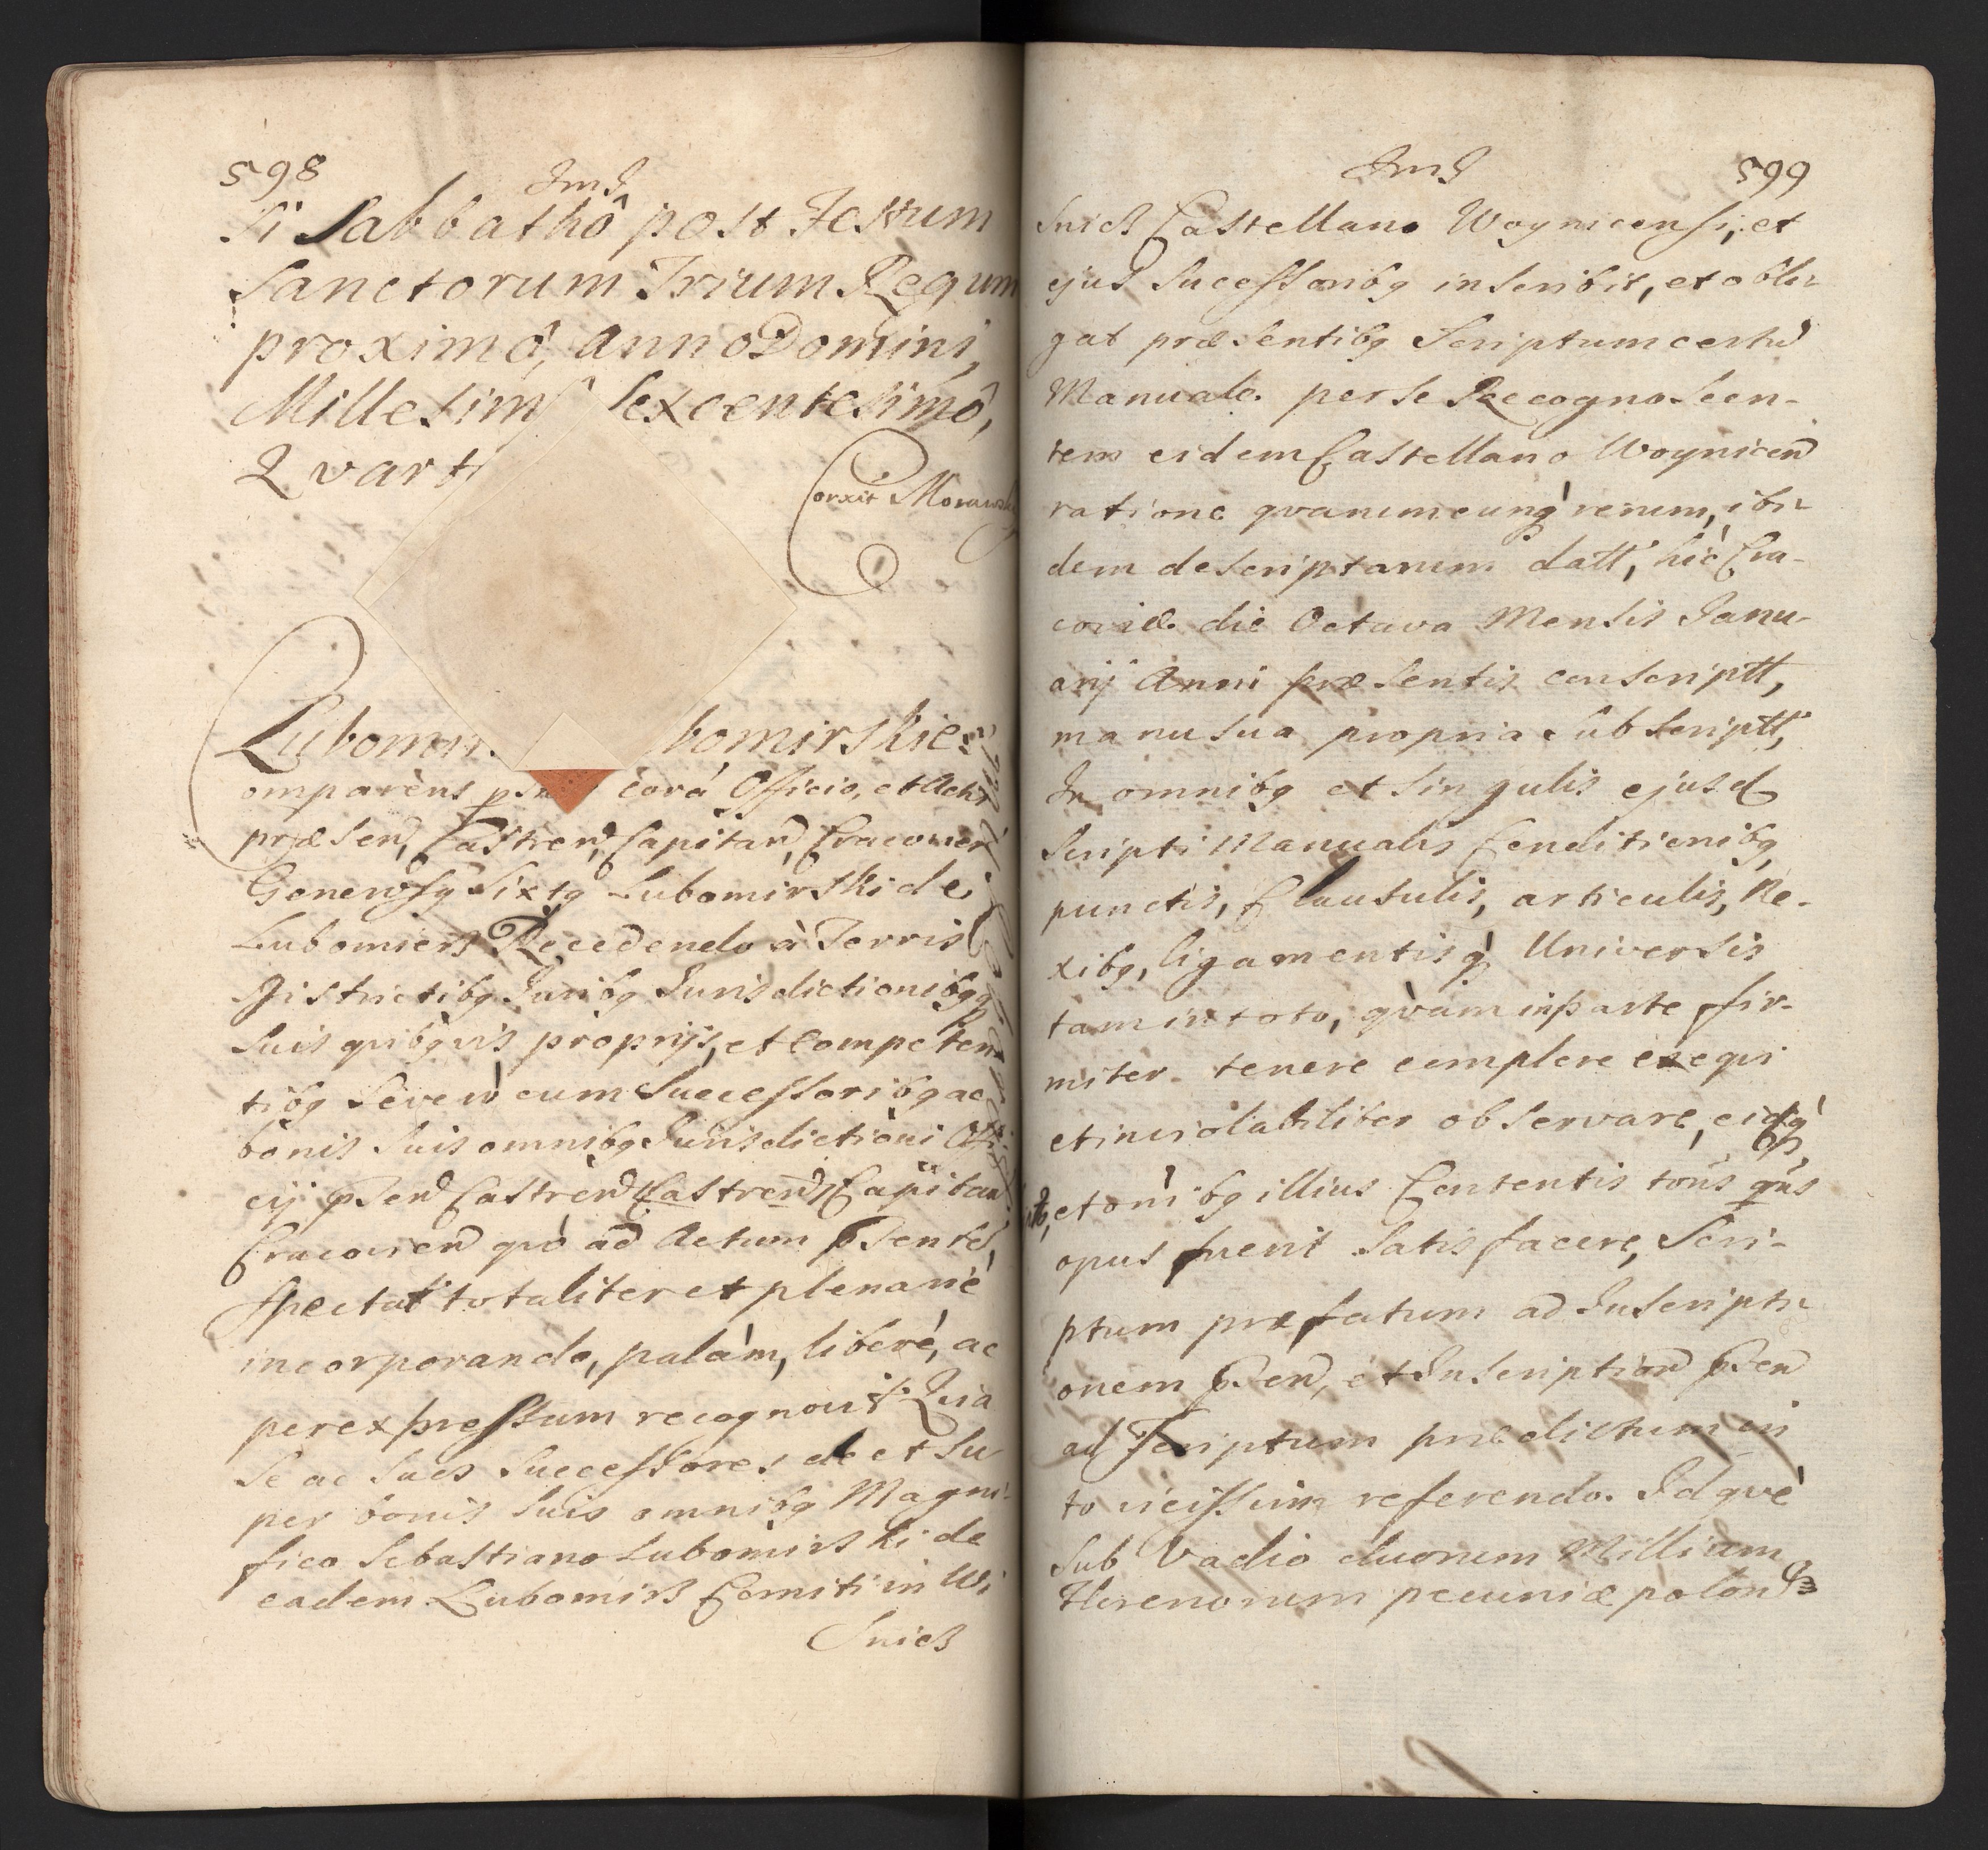 598
JmJ
Fi Sabbathô post Festum
Sanctorum Trium Regum
proximô, Anno Domini
Millesim Sexcentesimô,
Qvart
Corxit Morawski
Lubomir bomirskie
omparèns psn corá Officio, et Actis
præsen, Castren, Capitan, Cracovien
Generosq Sixtq Lubomirski de
Lubomierz Recedendo à Terris
Districtibq Juribq Jurisdictionibqq
Suis qvibqvis proprijs, et Competen
tibq Seve cum Successoribq ac
bonis Suis omnibq Jurisdictioni Offi
cij pSen Castren Castren Capitan
Cracovien qvò ad Actum pSentě,
Spectat totaliter et plenariè
incorporando, palàm, liberè, ac
per expressum recognovit Qvia
Se ac Suos Successores de et Su
per bonis Suis omnibq Magni
fico Sebastiano Lubomirski de
eadem Lubomirz Comiti in Wi
Snicz
JmJ 599
Snicz Castellano Woynicensi, et
ejus Sucessoribq inscribit, et obli
gat præsentibq Scriptum certu
Manuale per Se Recognoscen-
tem eidem Castellano Woynicen
ratione qvarumcunq rerum, ibi
dem descriptarum datt, hic Cra-
coviæ die Octava Mensis Janu-
arij Anni præsentis conscriptt,
manu sua propria Subscriptt,
In omnibq et Singulis ejusd
Scripti Manualis Conditionibq
punctis, Clausulis, articulis, Ne-
xibq, ligamentisq Universis
tam in toto, qvàm in parte fir-
miter tenere complere exeqvi
et inviolabiliter observare, eidq
et oni bq illius Contentis toús qús
opus fuerit Satisfacere, Scri-
ptum præfatum ad Inscripti
onem pSen, et Inscription pSen
ad Scriptum prædictum in
to vicissim referendo. Idqvè
Sub Vadio duorum Millium
Florenorum pecuniæ polon